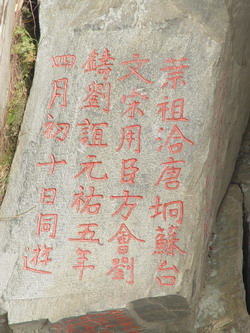 葉祖洽唐坰蘇台
文宋用臣方會劉
鑄劉誼元祐五年
四月初十日同遊